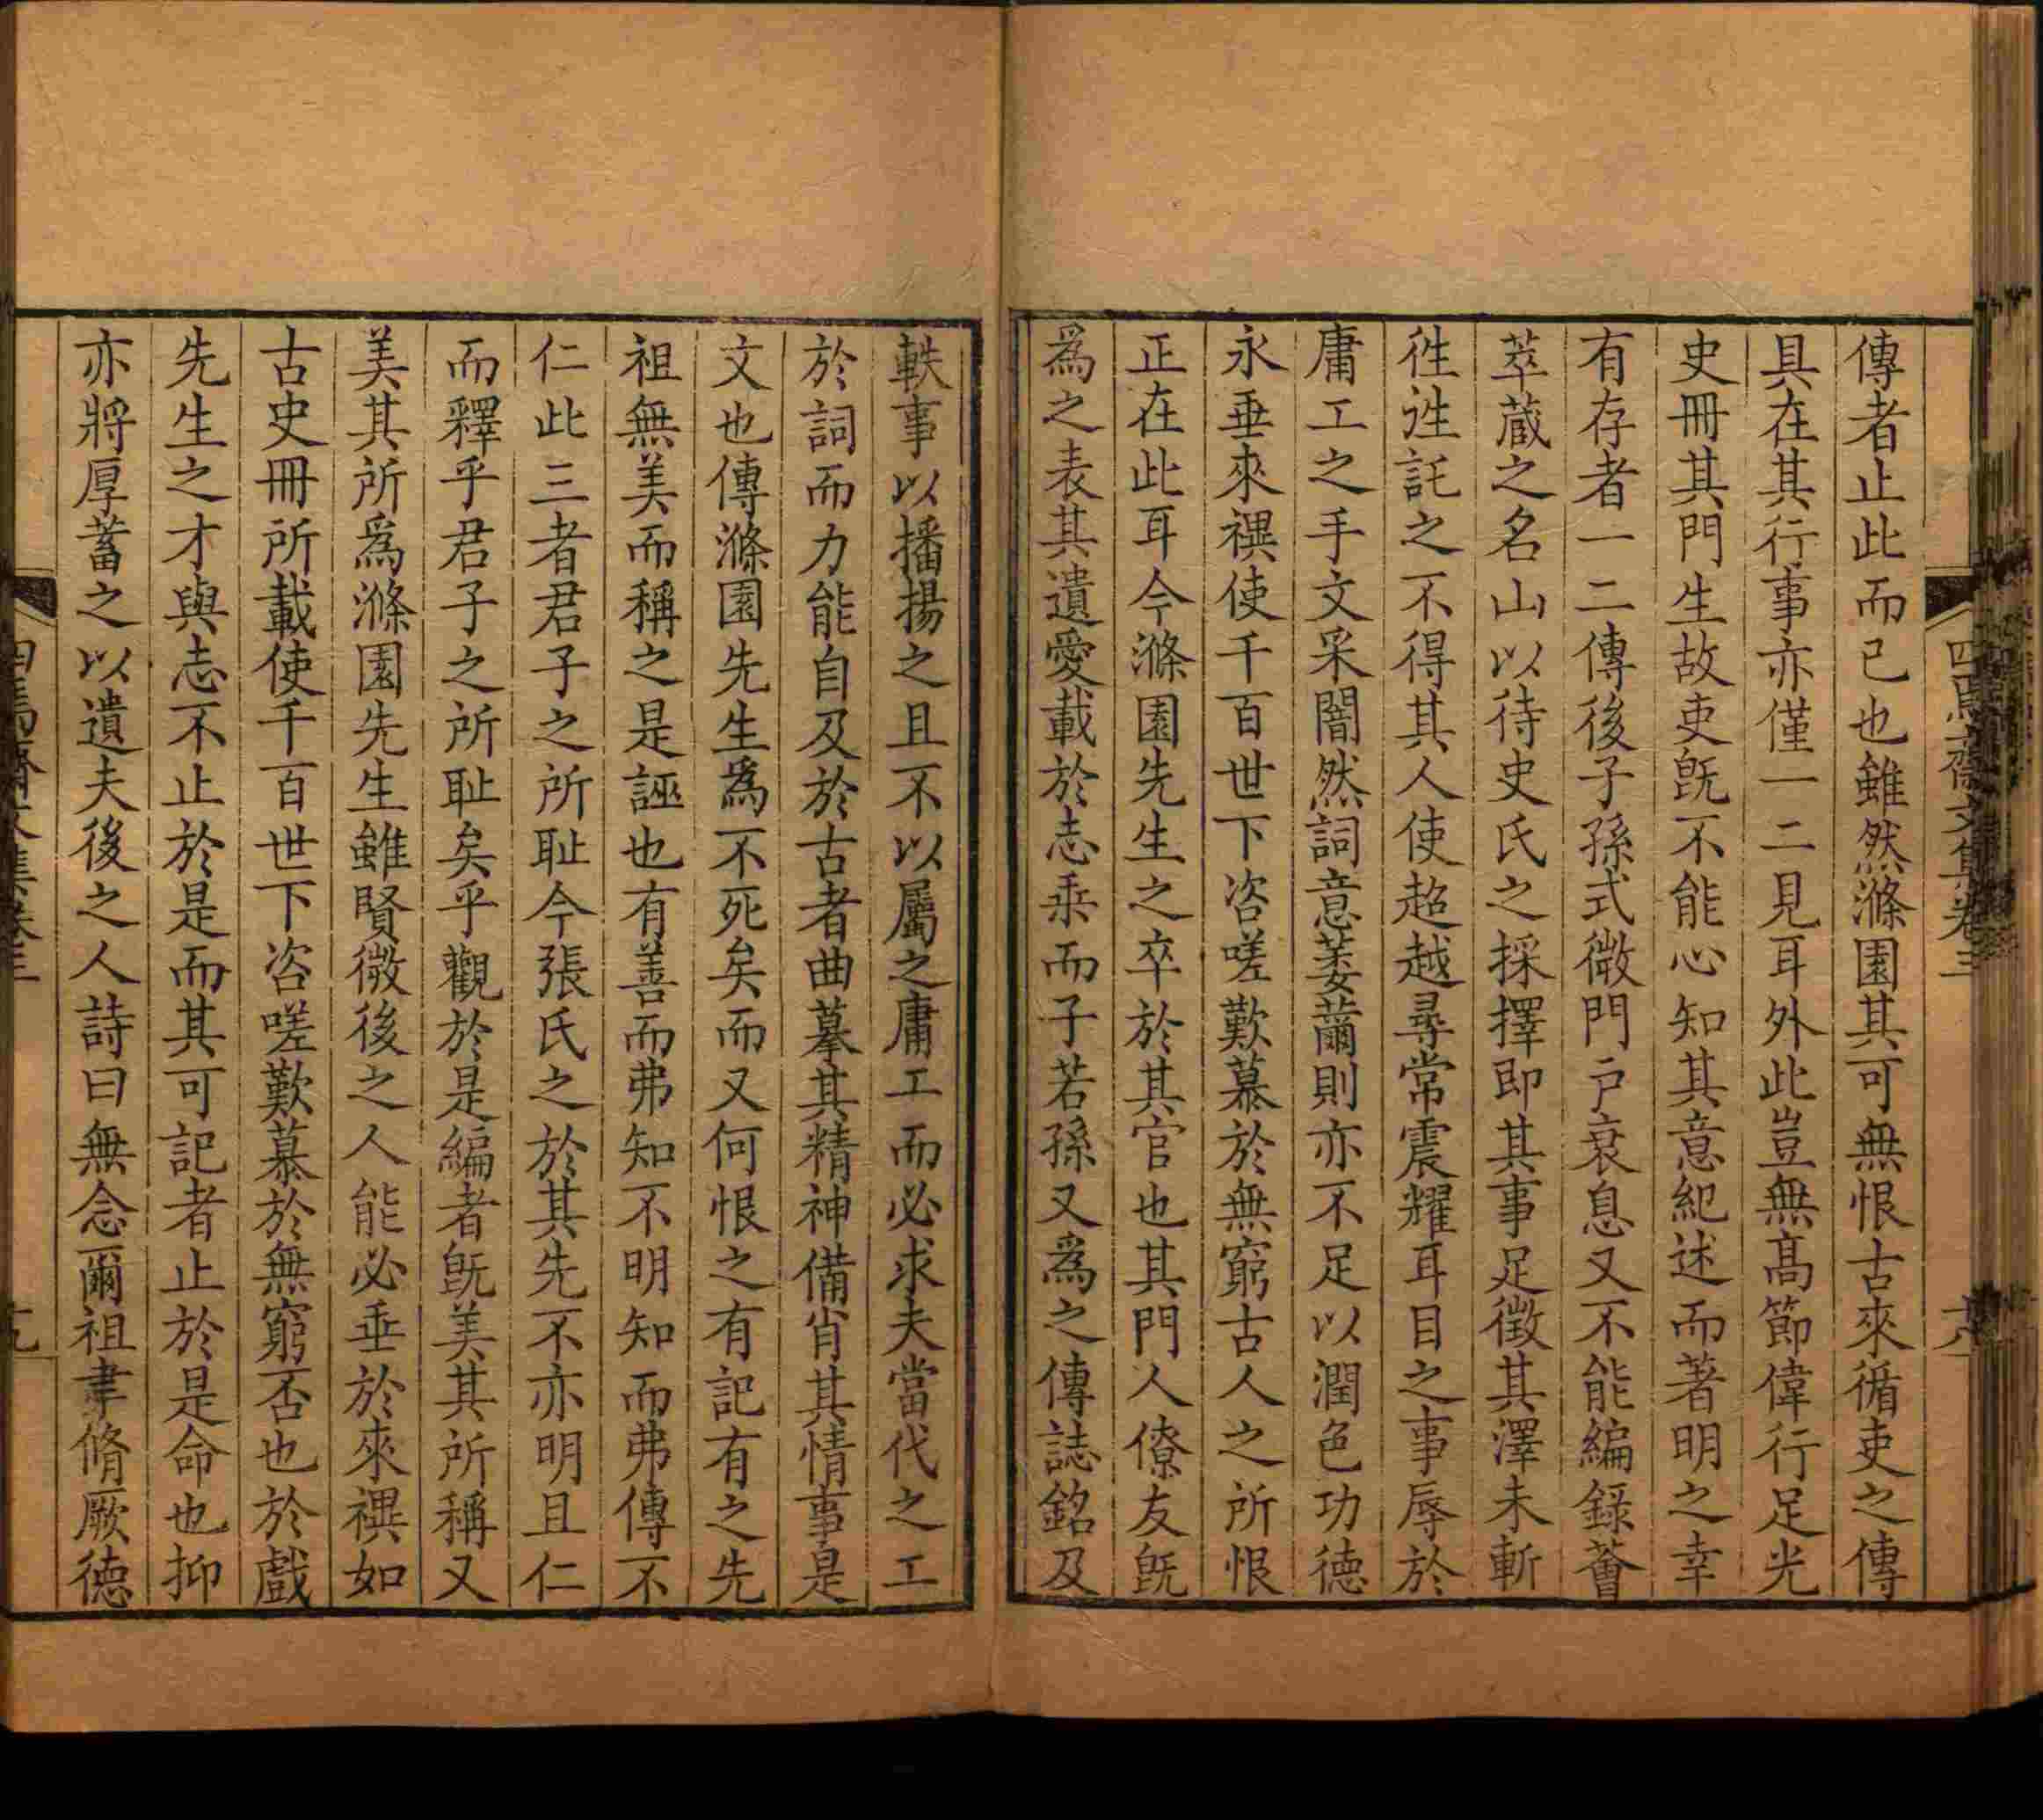 傳者止此而已也雖然滌園其可無恨古來循吏之傳
具在其行事亦僅一二見耳外此豈無高節偉行足光
史冊其門生故吏旣不能心知其意紀述而著明之幸
有存者一二傳後子孫式微門戶衰息又不能編錄薈
萃蔵之名山以待史氏之採擇即其事足徵其澤未斬
徃徃託之不得其人使超越尋常震耀耳目之事辱於
庸工之手文采闇然詞意萎薾則亦不足以潤色功德
永垂來禩使千百世下咨嗟歎慕於無窮古人之所恨
正在此耳今滌園先生之卒於其官也其門人僚友旣
爲之表其遺愛載於志乘而子若孫又爲之傳誌銘及
四焉齋文集卷三
十八
軼事以播揚之且不以屬之庸工而必求夫當代之工
於詞而力能自及於古者曲摹其精神備肖其情事是
文也傳滌園先生爲不死矣而又何恨之有記有之先
祖無美而稱之是誣也有善而弗知不明知而弗傳不
仁此三者君子之所耻今張氏之於其先不亦明且仁
而釋乎君子之所耻矣乎觀於是編者旣美其所稱又
美其所爲滌園先生雖賢微後之人能必垂於來禩如
古史冊所載使千百世下咨嗟歎慕於無窮否也於戲
先生之才與志不止於是而其可記者止於是命也抑
亦將厚蓄之以遺夫後之人詩曰無念爾祖聿脩厥德
四焉齋文集卷三
十九